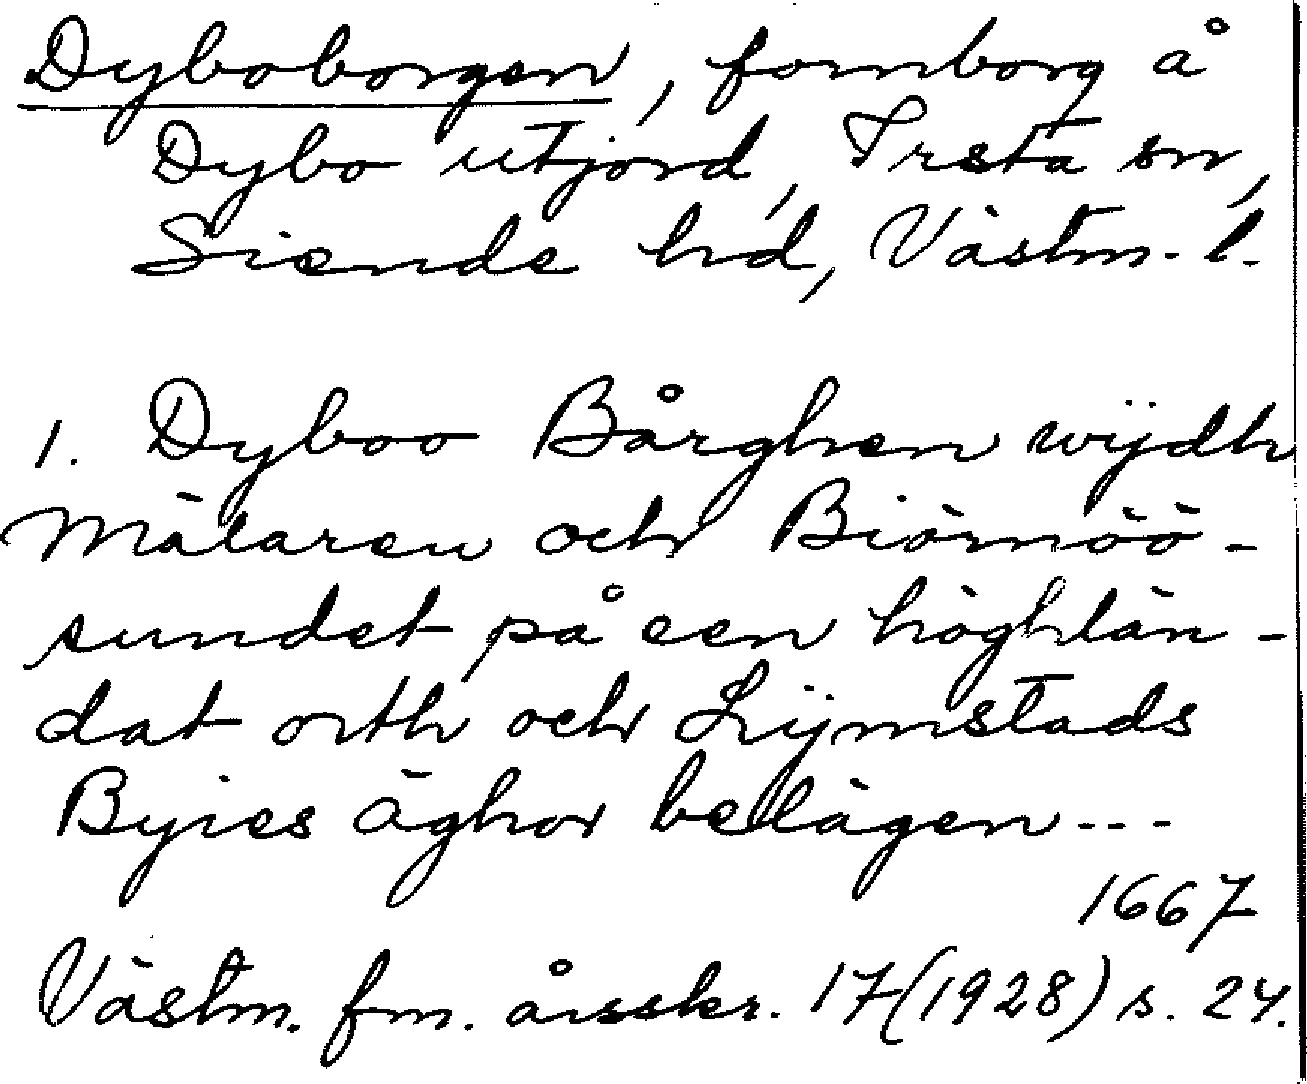 Dyboborgen, fornborg å
Dybo utjord, Irsta sn,
Siende hd, Västm. l.
1. Dyboo Bårghen wijdh
Mälaren och Biörnöö-
sundet på een höghlän-
dat orth och Lijmstads
Byies äghor belägen ---
1667
Västm. fm. årsskr. 17 (1928) s. 24.